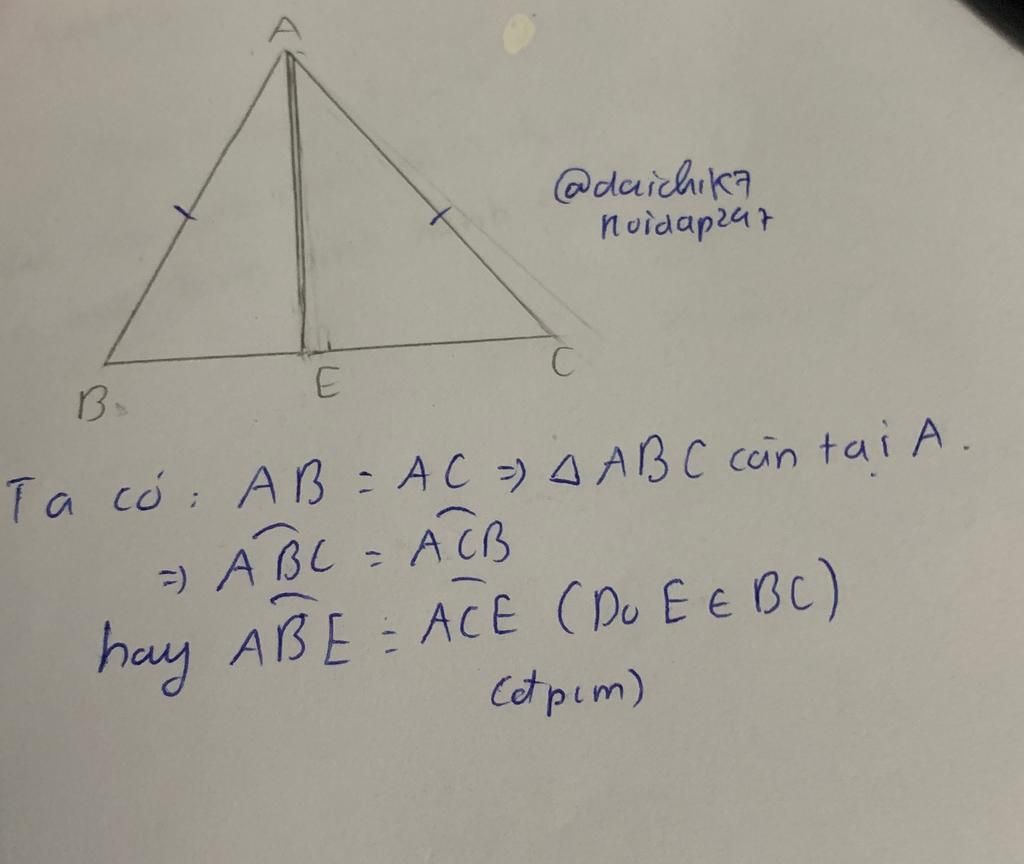 A
@daichik7
noidap247
B
E
C
Ta có: AB = AC => Δ ABC cân tại A.
=> ABC = ACB
hay ABE = ACE (Do E ∈ BC)
(đtpcm)